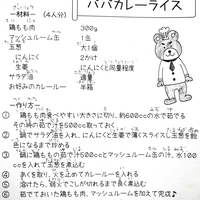 ババカレーライス
ー材料ー (4人分)
鶏もも肉 300g
マッシュルーム缶 1缶
玉葱 大1個
にんにく 2かけ
生姜 にんにくと同量程度
サラダ油 適量
お好みのカレールー 半箱
ー作り方ー
① 鶏もも肉食べやすい大きさに切り、約600ccの水で茹で
後で茹で汁を500cc取っておく
② 鍋でサラダ油を入れ、にんにくと生姜を薄くスライス
色になるまで炒める
③ 鍋に鶏ももの茹で汁500ccとマッシュルーム缶の汁、水100
ccを入れて玉葱が柔らかくなるまで煮込む
④ あくを取り、火を止めてカレールーを入れる
⑤ 溶けたら、弱火でこしが切れるまで良く煮込む
⑥ 茹でておいた鶏もも肉、マッシュルームを加えて完成♪